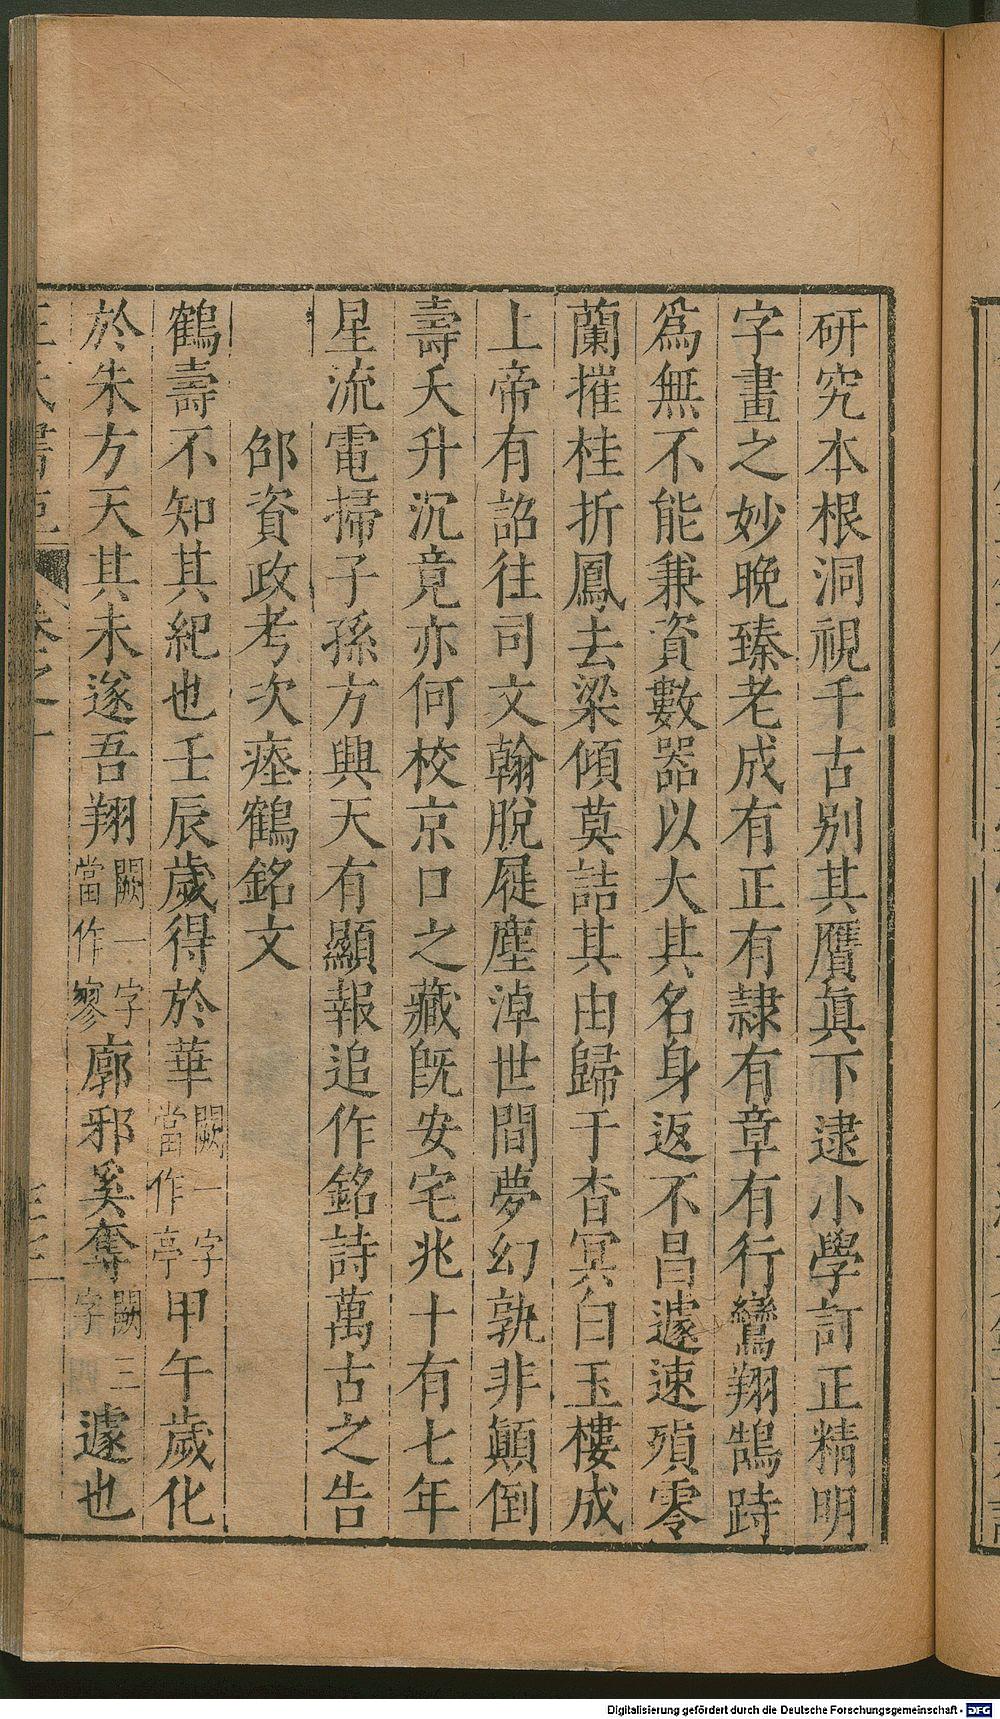 研究本根洞視千古別其贋眞下逮小學訂正精明
字畫之妙晚臻老成有正有隸有章有行鸞翔鵠跱
爲無不能兼資數器以大其名身返不昌遽速殞零
蘭摧桂折鳳去梁傾莫詰其由歸于杳冥白玉樓成
上帝有詔往司文翰脫屣塵淖世間夢幻孰非顚倒
壽夭升沉竟亦何校京口之藏旣安宅兆十有七年
星流電掃子孫方興天有顯報追作銘詩萬古之告
邵資政考次瘞鶴銘文
鶴壽不知其紀也壬辰歲得於華闕一字當作亭甲午歲化
於朱方天其未遂吾翔闕一字當作寥廓邪奚奪闕三字遽也
王氏書苑 卷之一
Digitalisierung gefördert durch die Deutsche Forschungsgemeinschaft - DFG